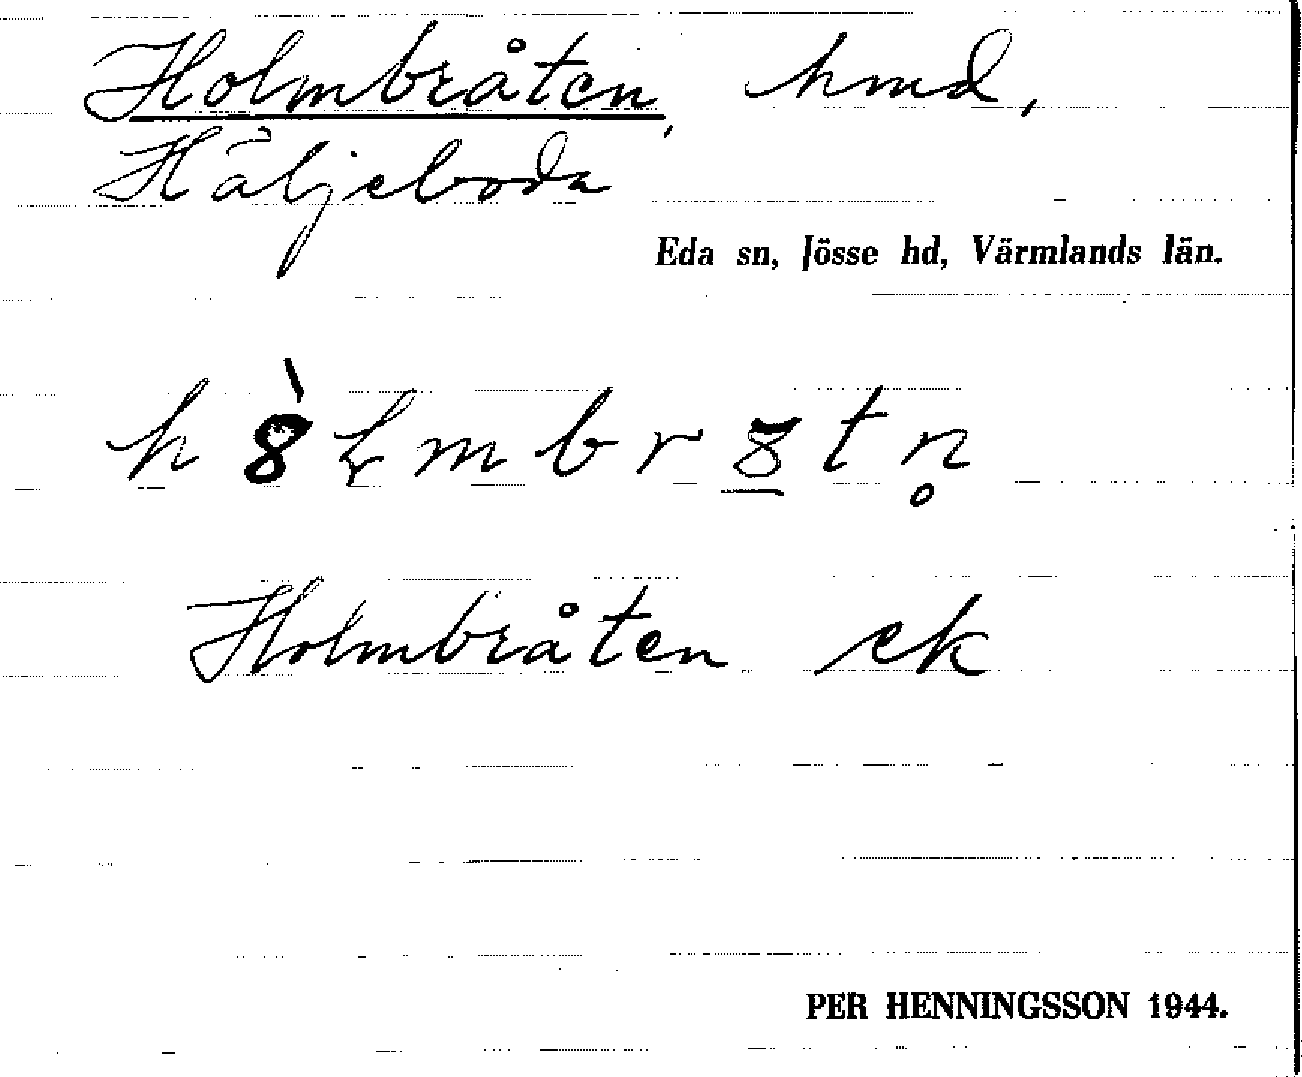 Holmbråten, hmd,
Häljeboda
Eda sn, Jösse hd, Värmlands län.
h8̀ɽmbr8̲tn̥
Holmbråten ek
PER HENNINGSSON 1944.